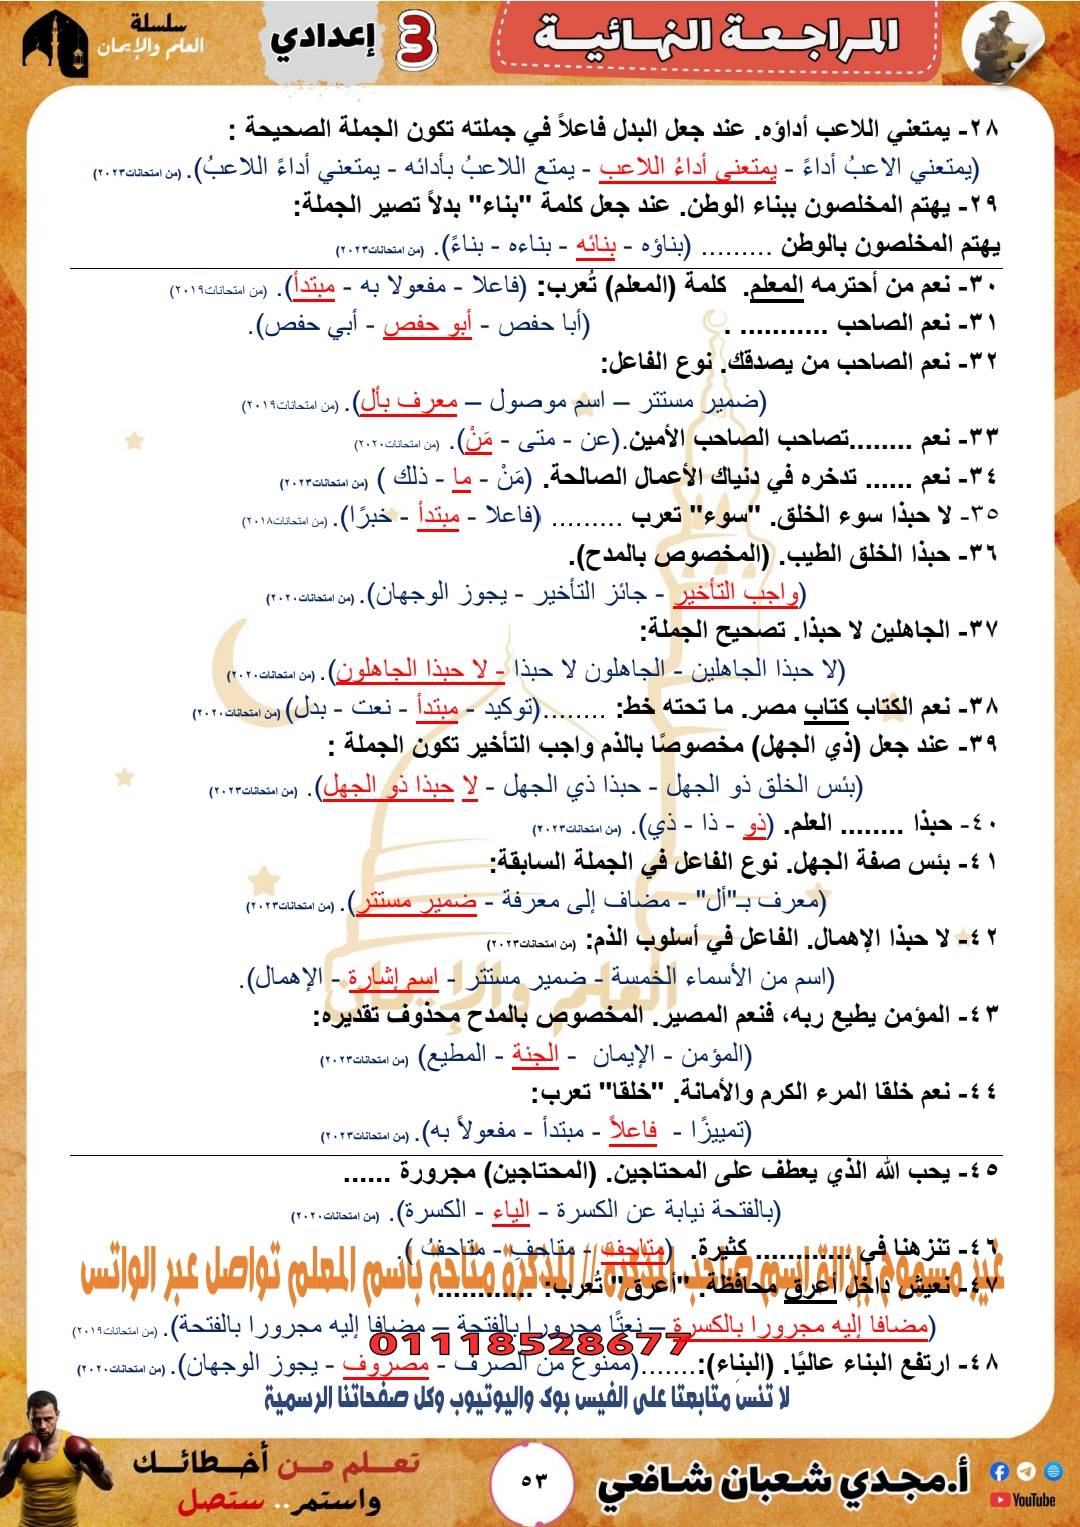 سلسلة
العلم والإيمان
3 إعدادي
المراجعة النهائية
٢٨- يمتعني اللاعب أداؤه. عند جعل البدل فاعلاً في جملته تكون الجملة الصحيحة :
(يمتعني الاعبُ أداءً - يمتعني أداءُ اللاعب - يمتع اللاعبُ بأدائه - يمتعني أداءً اللاعبُ). (من امتحانات٢٠٢٣)
٢٩- يهتم المخلصون ببناء الوطن. عند جعل كلمة "بناء" بدلاً تصير الجملة:
يهتم المخلصون بالوطن ......... (بناؤه - بنائه - بناءه - بناءً). (من امتحانات٢٠٢٣)
٣٠- نعم من أحترمه المعلم. كلمة (المعلم) تُعرب: (فاعلا - مفعولا به - مبتدأ). (من امتحانات٢٠١٩)
٣١- نعم الصاحب ........... . (أبا حفص - أبو حفص - أبي حفص).
٣٢- نعم الصاحب من يصدقك. نوع الفاعل:
(ضمير مستتر – اسم موصول – معرف بأل). (من امتحانات٢٠١٩)
٣٣- نعم ........تصاحب الصاحب الأمين.(عن - متى - مَنْ). (من امتحانات٢٠٢٠)
٣٤- نعم ...... تدخره في دنياك الأعمال الصالحة. (مَنْ - ما - ذلك ) (من امتحانات٢٠٢٣)
٣٥- لا حبذا سوء الخلق. "سوء" تعرب ......... (فاعلا - مبتدأ - خبرًا). (من امتحانات٢٠١٨)
٣٦- حبذا الخلق الطيب. (المخصوص بالمدح).
(واجب التأخير - جائز التأخير - يجوز الوجهان). (من امتحانات٢٠٢٠)
٣٧- الجاهلين لا حبذا. تصحيح الجملة:
(لا حبذا الجاهلين - الجاهلون لا حبذا - لا حبذا الجاهلون). (من امتحانات٢٠٢٠)
٣٨- نعم الكتاب كتاب مصر. ما تحته خط: ........(توكيد - مبتدأ - نعت - بدل) (من امتحانات٢٠٢٠)
٣٩- عند جعل (ذي الجهل) مخصوصًا بالذم واجب التأخير تكون الجملة :
(بئس الخلق ذو الجهل - حبذا ذي الجهل - لا حبذا ذو الجهل). (من امتحانات٢٠٢٣)
٤٠- حبذا ........ العلم. (ذو - ذا - ذي). (من امتحانات٢٠٢٣)
٤١- بئس صفة الجهل. نوع الفاعل في الجملة السابقة:
(معرف بـ"أل" - مضاف إلى معرفة - ضمير مستتر). (من امتحانات٢٠٢٣)
٤٢- لا حبذا الإهمال. الفاعل في أسلوب الذم: (من امتحانات٢٠٢٣)
(اسم من الأسماء الخمسة - ضمير مستتر - اسم إشارة - الإهمال).
العلم والإيمان
٤٣- المؤمن يطيع ربه، فنعم المصير. المخصوص بالمدح محذوف تقديره:
(المؤمن - الإيمان - الجنة - المطيع) (من امتحانات٢٠٢٣)
٤٤- نعم خلقا المرء الكرم والأمانة. "خلقا" تعرب:
(تمييزًا - فاعلاً - مبتدأ - مفعولاً به). (من امتحانات٢٠٢٣)
٤٥- يحب الله الذي يعطف على المحتاجين. (المحتاجين) مجرورة ......
(بالفتحة نيابة عن الكسرة - الياء - الكسرة). (من امتحانات٢٠٢٠)
٤٦- تنزهنا في ............ كثيرة. (متاحفَ - متاحفِ - متاحفُ ).
غير مسموح بإزالة اسم صاحب المذكرة // المذكرة متاحة باسم المعلم تواصل عبر الواتس
٤٧- نعيش داخل أعرق محافظة. "أعرق" تُعرب: ............
(مضافا إليه مجرورا بالكسرة – نعتًا مجرورا بالفتحة – مضافا إليه مجرورا بالفتحة). (من امتحانات٢٠١٩)
01118528677
٤٨- ارتفع البناء عاليًا. (البناء):.......(ممنوع من الصرف - مصروف - يجوز الوجهان). (من امتحانات٢٠٢٠)
لا تنس متابعتنا على الفيس بوك واليوتيوب وكل صفحاتنا الرسمية
تعلم من أخطائك
واستمر.. ستصل
٥٣
أ.مجدي شعبان شافعي
YouTube